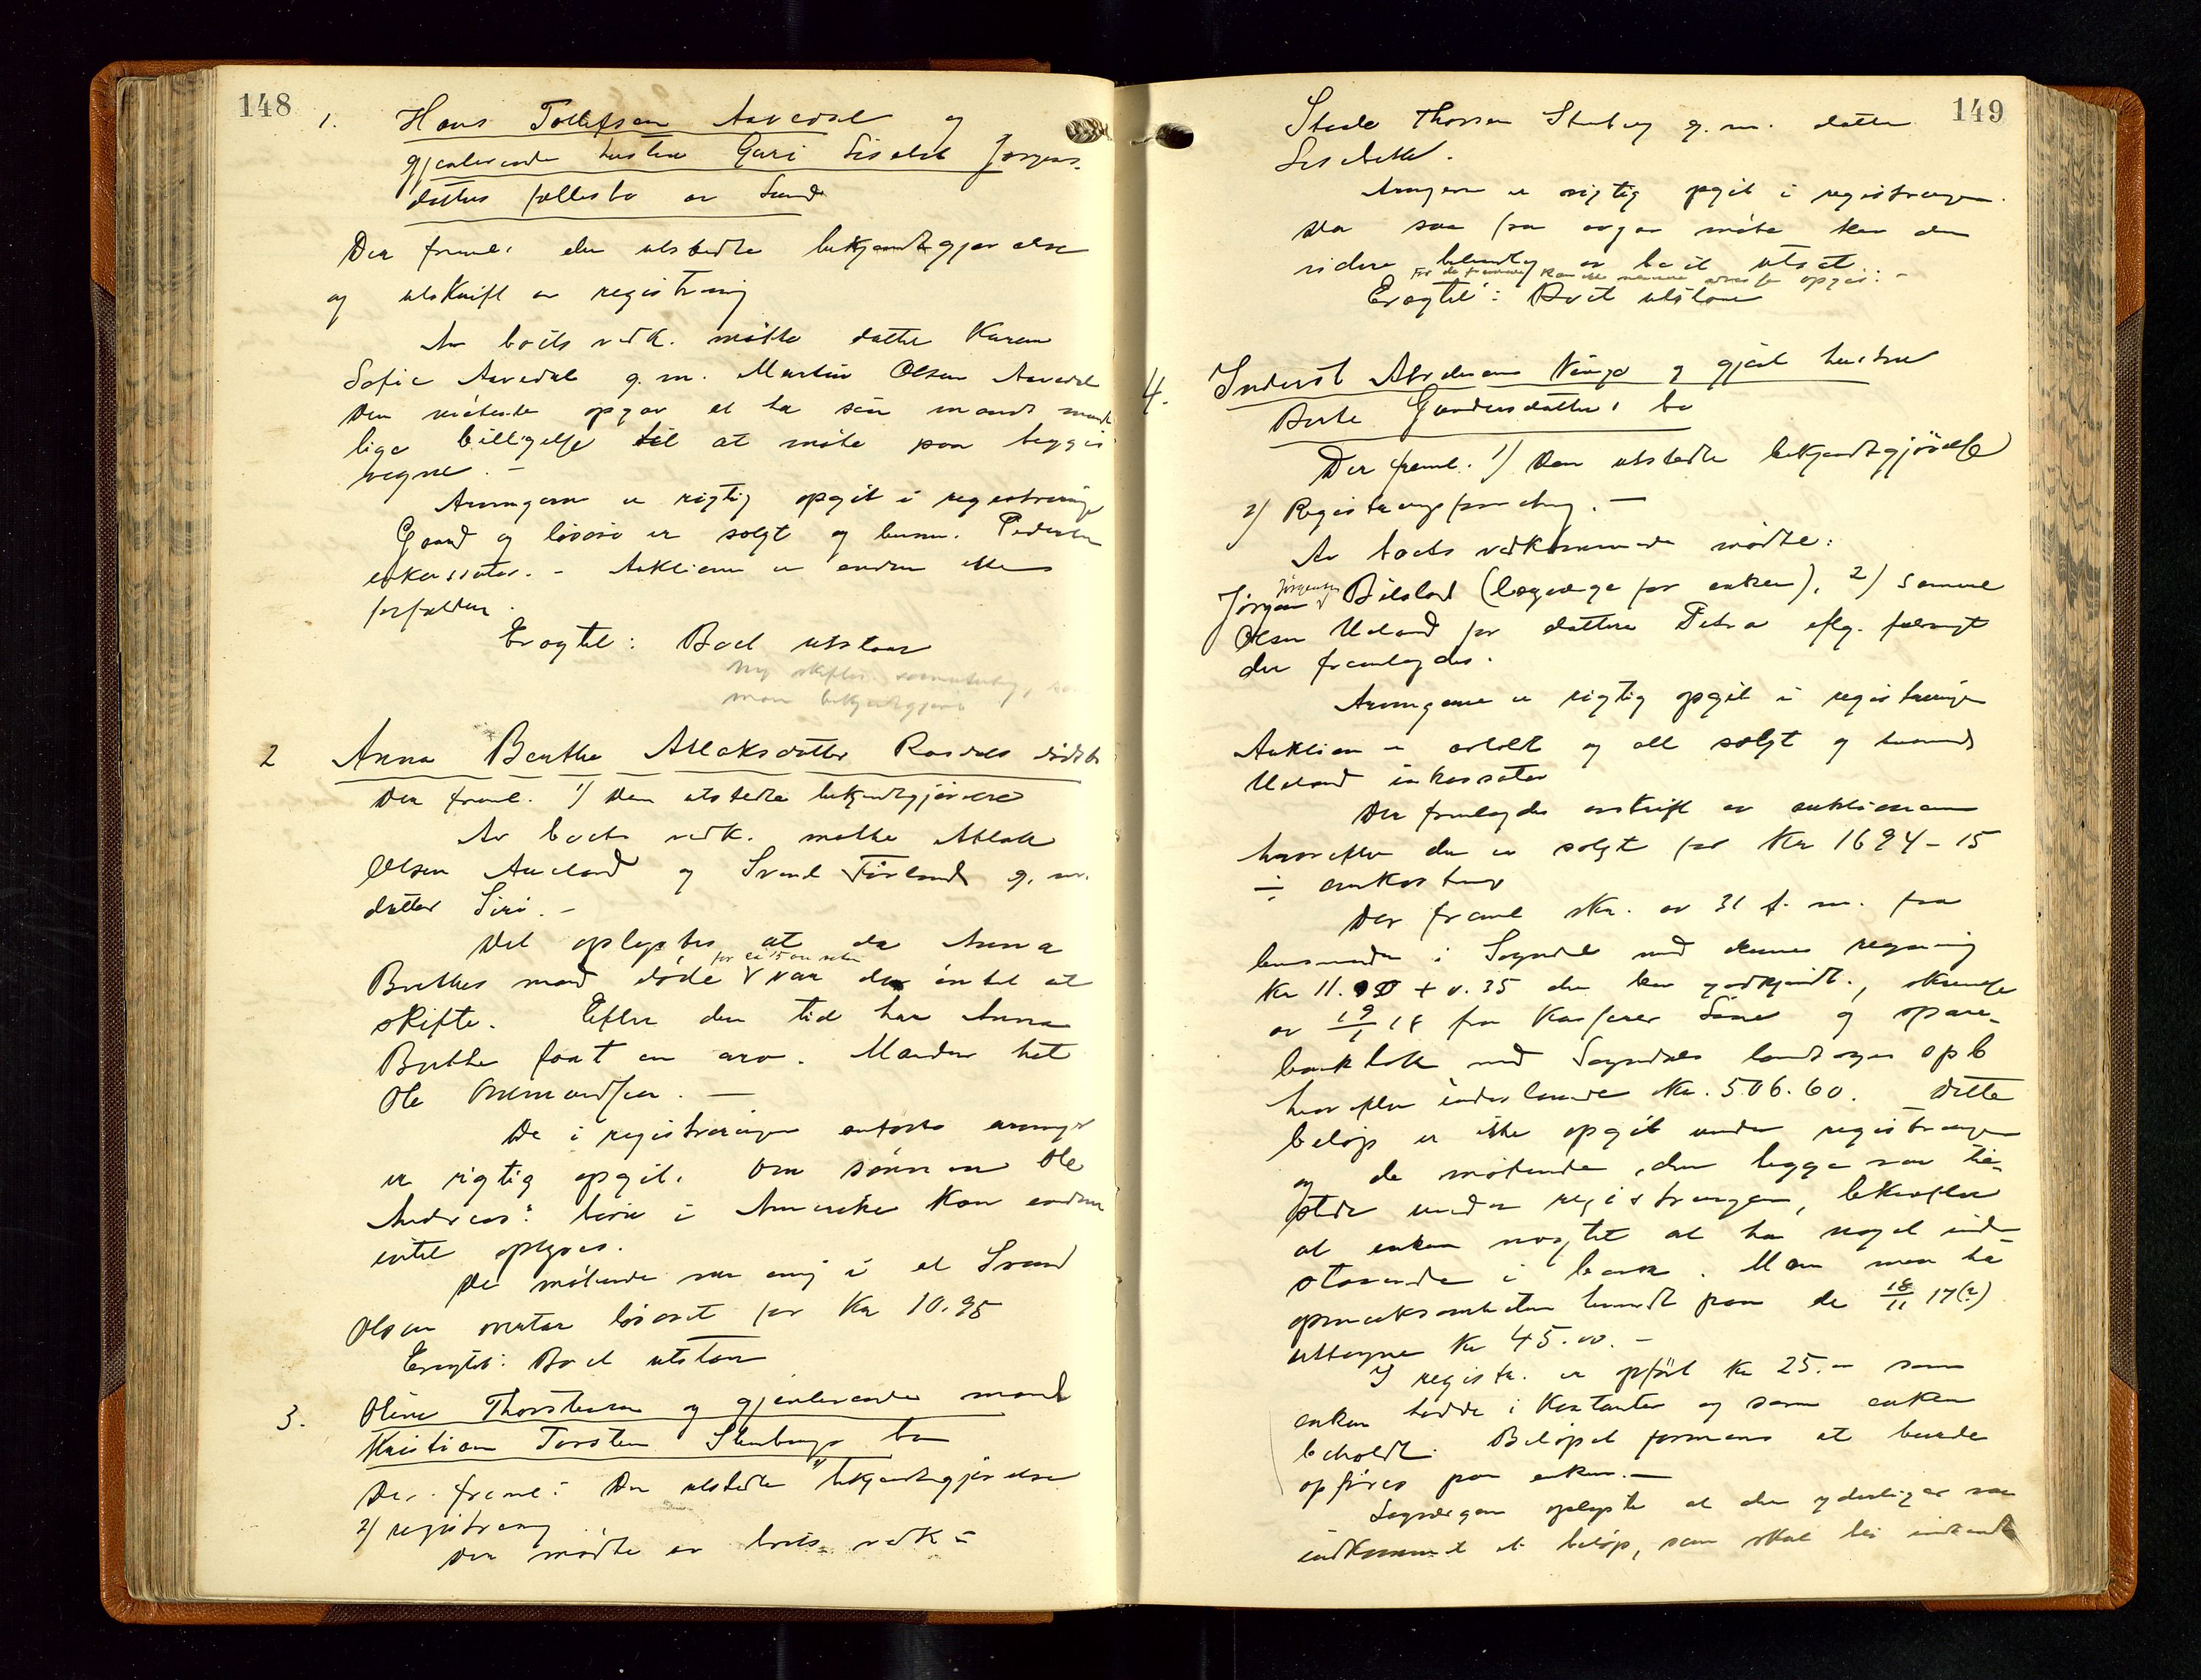 148
1. Hans Tollefsen Aavedal og
gjenlevende hustru Guri Siselil Jørgens-
datters fællesbo av Sund
Der freml. den utstedte bekjendtgjørelse
og utskrift av registrering
Av boets vedk. møtte datter Karen
Sofie Aavedal g.m. Martin Olsen Aavedal
Den møtende opgav at ha sin mands mundt
lige billigelse til at møte paa begges
vegne. -
Arvingerne er rigtig opgit i registreringen
Gaard og løsøre er solgt og lensm. Pedersen
inkassator. - Auktionen er endnu ikke
forfalden.
Eragtet: Boet utstaar
Ny skiftes. man bekjendtgjøres
2 Anna Berthe Atlaksdatter Rosdals dødsbo
Der freml. 1) Den utstedte bekjendtgjørelse
Av boets vedk. møtte Atlak
Olsen Aaeland og SvendFørland g.m.
datter Siri. -
Det oplystes at da Anna
Berthes mand døde for ca 15 aar siden var der intet at
skifte. Efter den tid har Anna
Berthe faat en arv. Manden het
Ole Osmundsen. —
De i registreringen anførte arvinger
er rigtig opgit. Om sønnen Ole
Andreas' børn i Amerika kan endnu
intet oplyses.
De møtende var enig i at Svend
Olsen overtar løsøret for Kr 10.95
Eragtet: Boet utstaar
3. Oline Thorstensen og gjenlevende mand
Kristian Torsten Stenbergs bo
Der freml: Den utstedte bekjendtgjørelse
2) registrering
Der mødte av boets vedk:
149
Thorsen Stenberg g.m. datter
Lisebette.
Arvingerne er rigtig opgit i registreringen.
Da saa faa avgav møte blev den
videre behandling av boet utsat
For de fraværende kan ikke nærmere adresser opgis. -
Eragtet: Boet utstaar
4. Inderst Abrahams Vinje og gjenl hustru
Berte Gundersdatters bo
Der freml. 1) Den utstedte bekjendtgjørelse
2) Registreringsforretning. —
Av boets vedkommende mødte:
Jørgen Jørgensen Bilstad (lagværge for enken), 2) Samuel
Olsen Ueland for datteren Petra iflg. fuldmagt
der fremlagdes.
Arvingerne er rigtig opgit i registreringen
Auktion er avholdt og alt solgt og lensmand
Ueland inkassator
Der fremlagdes avskrift av auktionen
hvorefter der er solgt for Kr 1694-15
÷ omkostninger
Der freml skr. av 31 f.m. fra
lensmanden i Sogndal med dennes regning
Kr 11.90 + 0.35 der blev godkjendt., skrivelse
av 19/1 18 fra Kasserer Sāne og spare-
bankbok med Sogndals landsogns spb
hvorefter indestaaende Kr. 506.60. Dette
beløp er ikke opgit under registreringen
og de møtende, der begge var til-
stede under registreringen, bekræfter
at enken nægtet at ha noget inde
staaende i bank. Man maa ha
opmerksomheten hendt paa de 18/11 17(?)
uttagne Kr 45.00. -
I registr. er opført Kr 25.- som
enken hadde i Kontanter og som enken
beholdt. Beløpet formenes at burde
opføres paa enken. —
Lagværgen oplyste at der yderligere var
indkommet et beløp, som skal bli indsendt